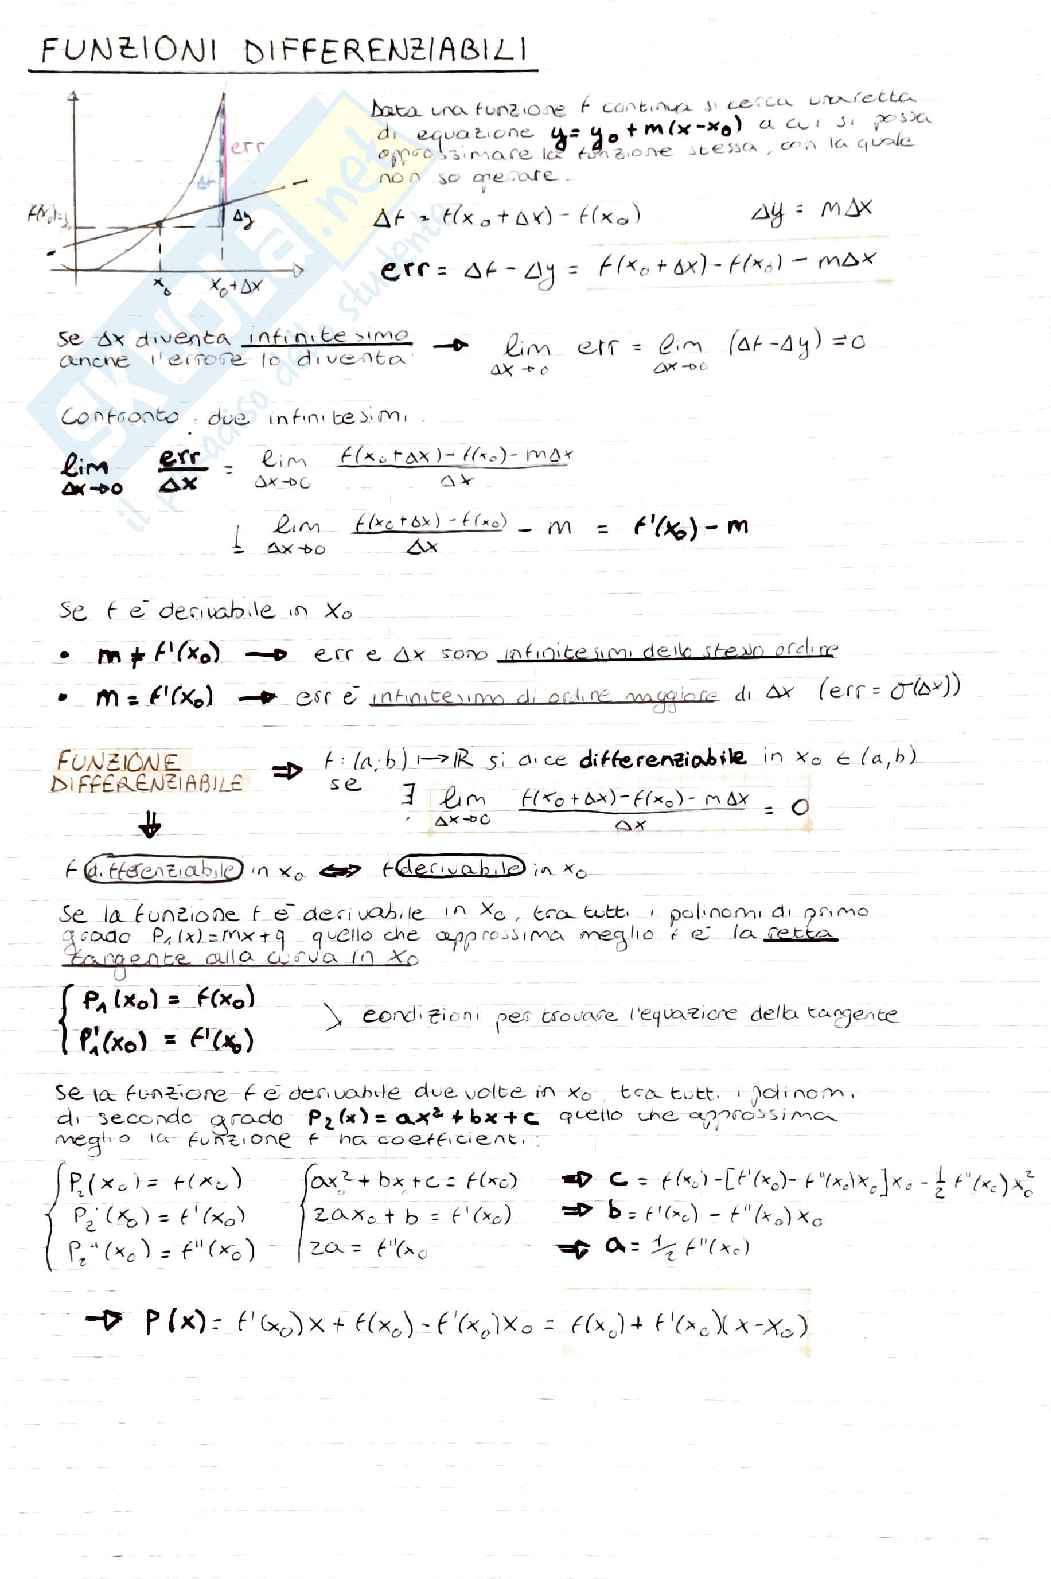 FUNZIONI DIFFERENZIABILI
Data una funzione f continua si cerca una retta
di equazione y = y₀ + m(x-x₀) a cui si possa
approssimare la funzione stessa, con la quale
non so operare.
err
Δf
f(x₀)=y₀
Δy
x₀ x₀+Δx
Δf = f(x₀+Δx) - f(x₀) Δy = mΔx
err = Δf - Δy = f(x₀+Δx) - f(x₀) - mΔx
Se Δx diventa infinitesimo
anche l'errore lo diventa → lim Δx→0 err = lim Δx→0 (Δf-Δy) = 0
Confronto due infinitesimi.
lim Δx→0 err/Δx = lim Δx→0 (f(x₀+Δx) - f(x₀) - mΔx)/Δx
lim Δx→0 (f(x₀+Δx) - f(x₀))/Δx - m = f'(x₀) - m
Se f è derivabile in x₀
• m ≠ f'(x₀) → err e Δx sono infinitesimi dello stesso ordine
• m = f'(x₀) → err è infinitesimo di ordine maggiore di Δx (err = σ(Δx))
FUNZIONE
DIFFERENZIABILE ⇒ f: (a,b) ↦ ℝ si dice differenziabile in x₀ ∈ (a,b)
se ∃ lim Δx→0 (f(x₀+Δx) - f(x₀) - mΔx)/Δx = 0
⇓
f differenziabile in x₀ ⇔ f derivabile in x₀
Se la funzione f è derivabile in x₀, tra tutti i polinomi di primo
grado P₁(x) = mx+q quello che approssima meglio f è la retta
tangente alla curva in x₀
{ P₁(x₀) = f(x₀)
P₁'(x₀) = f'(x₀) condizioni per trovare l'equazione della tangente
Se la funzione f è derivabile due volte in x₀ tra tutti i polinomi
di secondo grado P₂(x) = ax² + bx + c quello che approssima
meglio la funzione f ha coefficienti:
{ P₂(x₀) = f(x₀) { ax² + bx + c = f(x₀) ⇒ c = f(x₀) - [f'(x₀) - f''(x₀)x₀]x₀ - 1/2 f''(x₀)x₀²
P₂'(x₀) = f'(x₀) 2ax₀ + b = f'(x₀) ⇒ b = f'(x₀) - f''(x₀)x₀
P₂''(x₀) = f''(x₀) 2a = f''(x₀ ⇒ a = 1/2 f''(x₀)
→ P(x) = f'(x₀)x + f(x₀) - f'(x₀)x₀ = f(x₀) + f'(x₀)(x-x₀)
SKUOLA.net
il paradiso dello studente